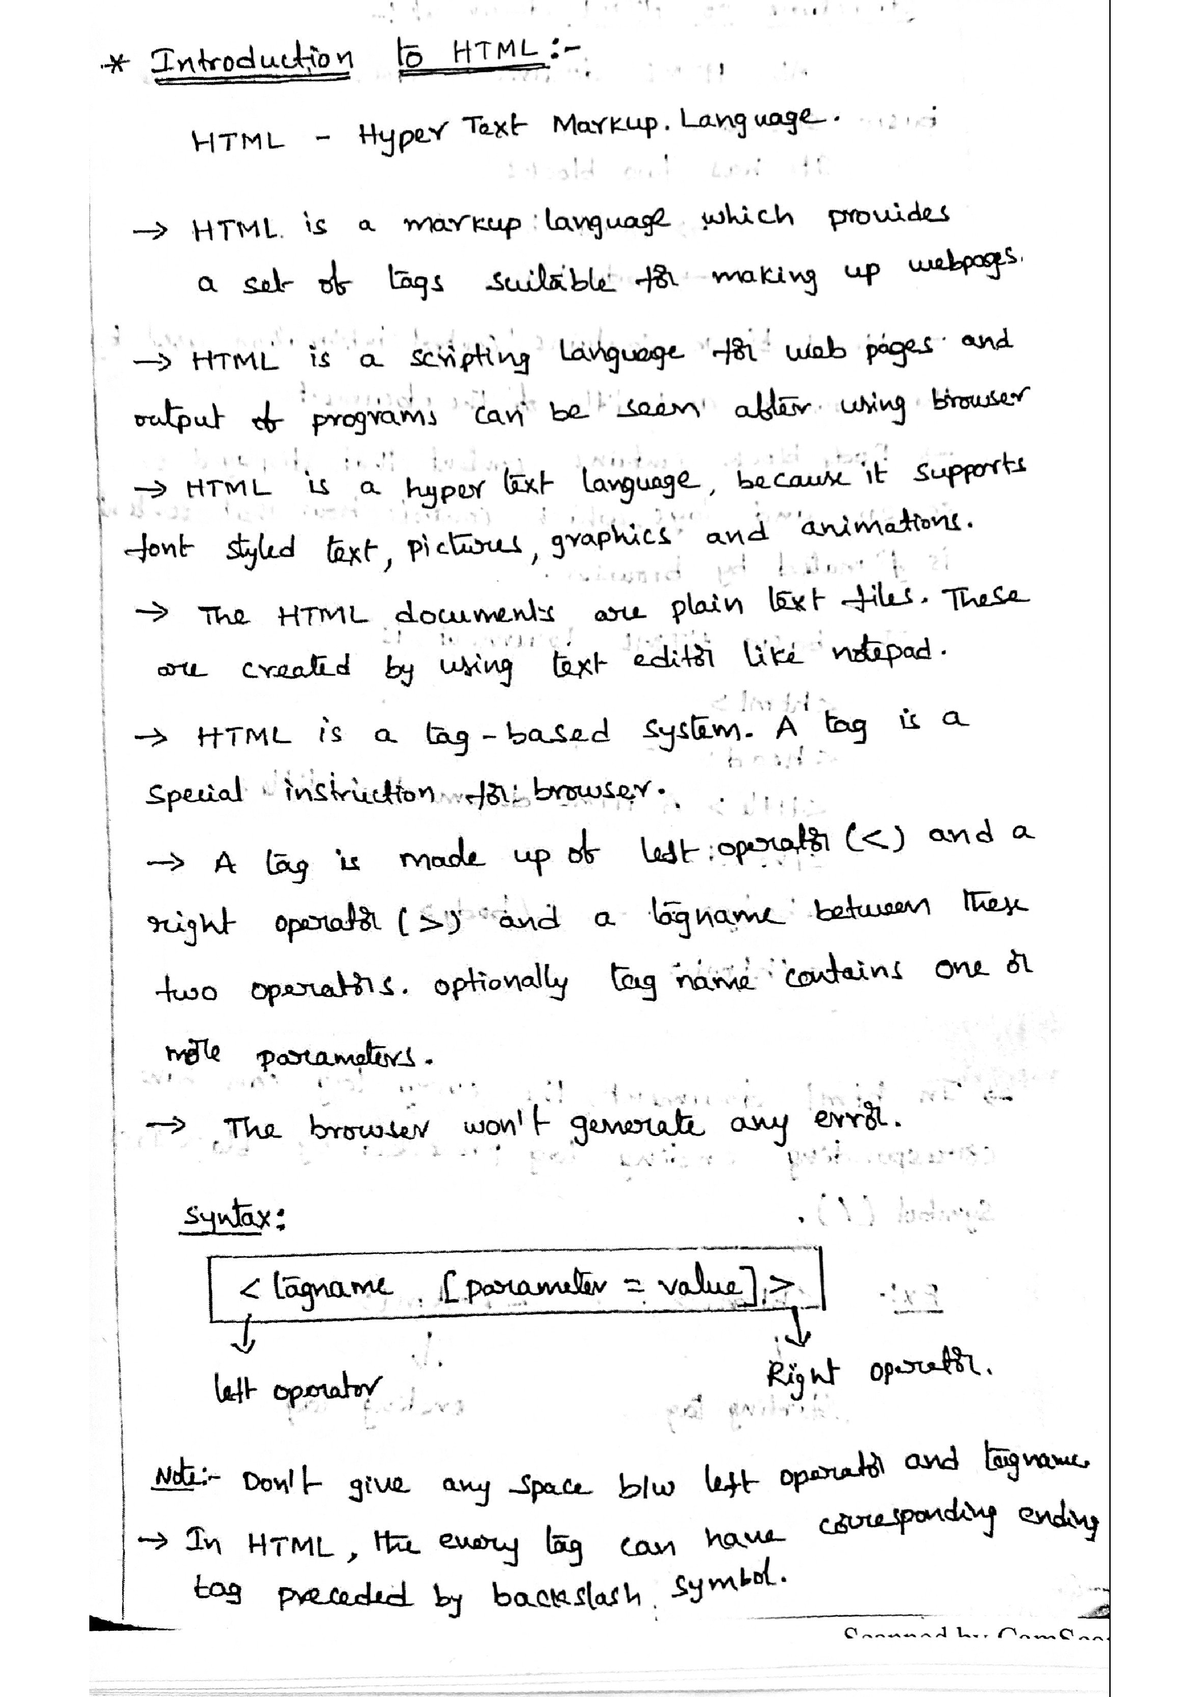 * Introduction to HTML:-
HTML - Hyper Text Markup. Language.
→ HTML is a markup language which provides
a set of tags suitable for making up webpages.
→ HTML is a scripting language for web pages and
output of programs can be seen after using browser
→ HTML is a hyper text language, because it supports
font styled text, pictures, graphics and animations.
→ The HTML documents are plain text files. These
are created by using text editor like notepad.
→ HTML is a tag-based system. A tag is a
special instruction for browser.
→ A tag is made up of left operator (<) and a
right operator (>) and a tagname between these
two operators. optionally tag name contains one or
more parameters.
→ The browser won't generate any error.
Syntax:
< tagname [parameter = value] >
left operator
Right operator.
Note:- Don't give any space b/w left operator and tagname.
→ In HTML, the every tag can have corresponding ending
tag preceded by backslash symbol.